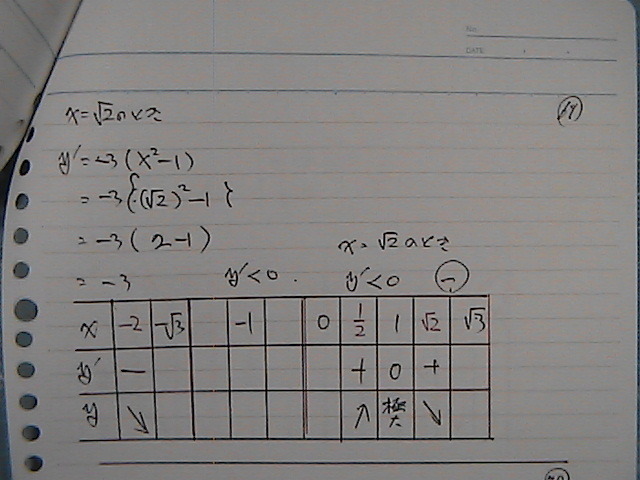 No.
DATE
x=√2のとき ⑲
y'=-3(x²-1)
=-3{(√2)²-1}
=-3(2-1) x=√2のとき
=-3 y'<0. y'<0 ㊀
x -2 -√3 -1 0 1/2 1 √2 √3
y' - + 0 +
y ↘ ↗ 極大 ↘